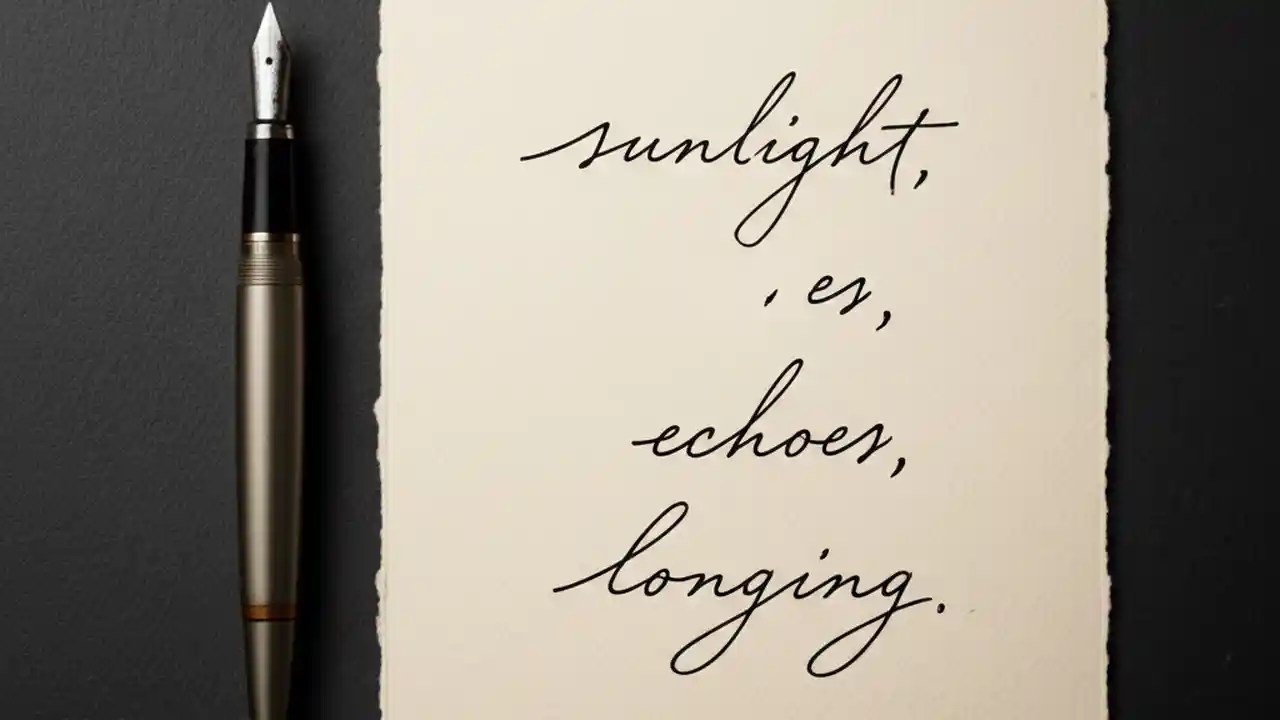 sunlight,
es,
echoes,
longing.